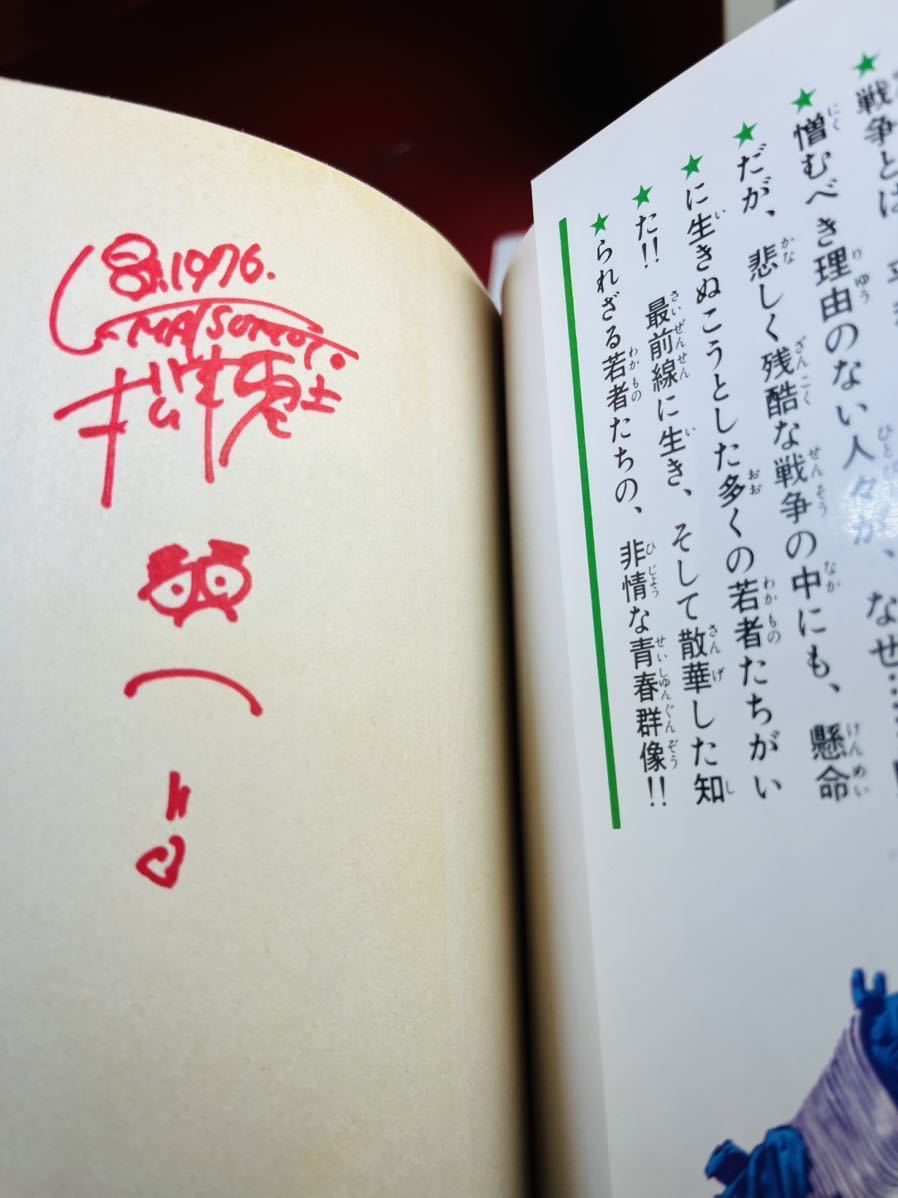 8.1976.
L.MATSUMOTO.
松本零士
★戦争とは
★憎むべき理由のない人々が、なぜ…
★だが、悲しく残酷な戦争の中にも、懸命
★に生きぬこうとした多くの若者たちがい
★た!! 最前線に生き、そして散華した知
★られざる若者たちの、非情な青春群像!!